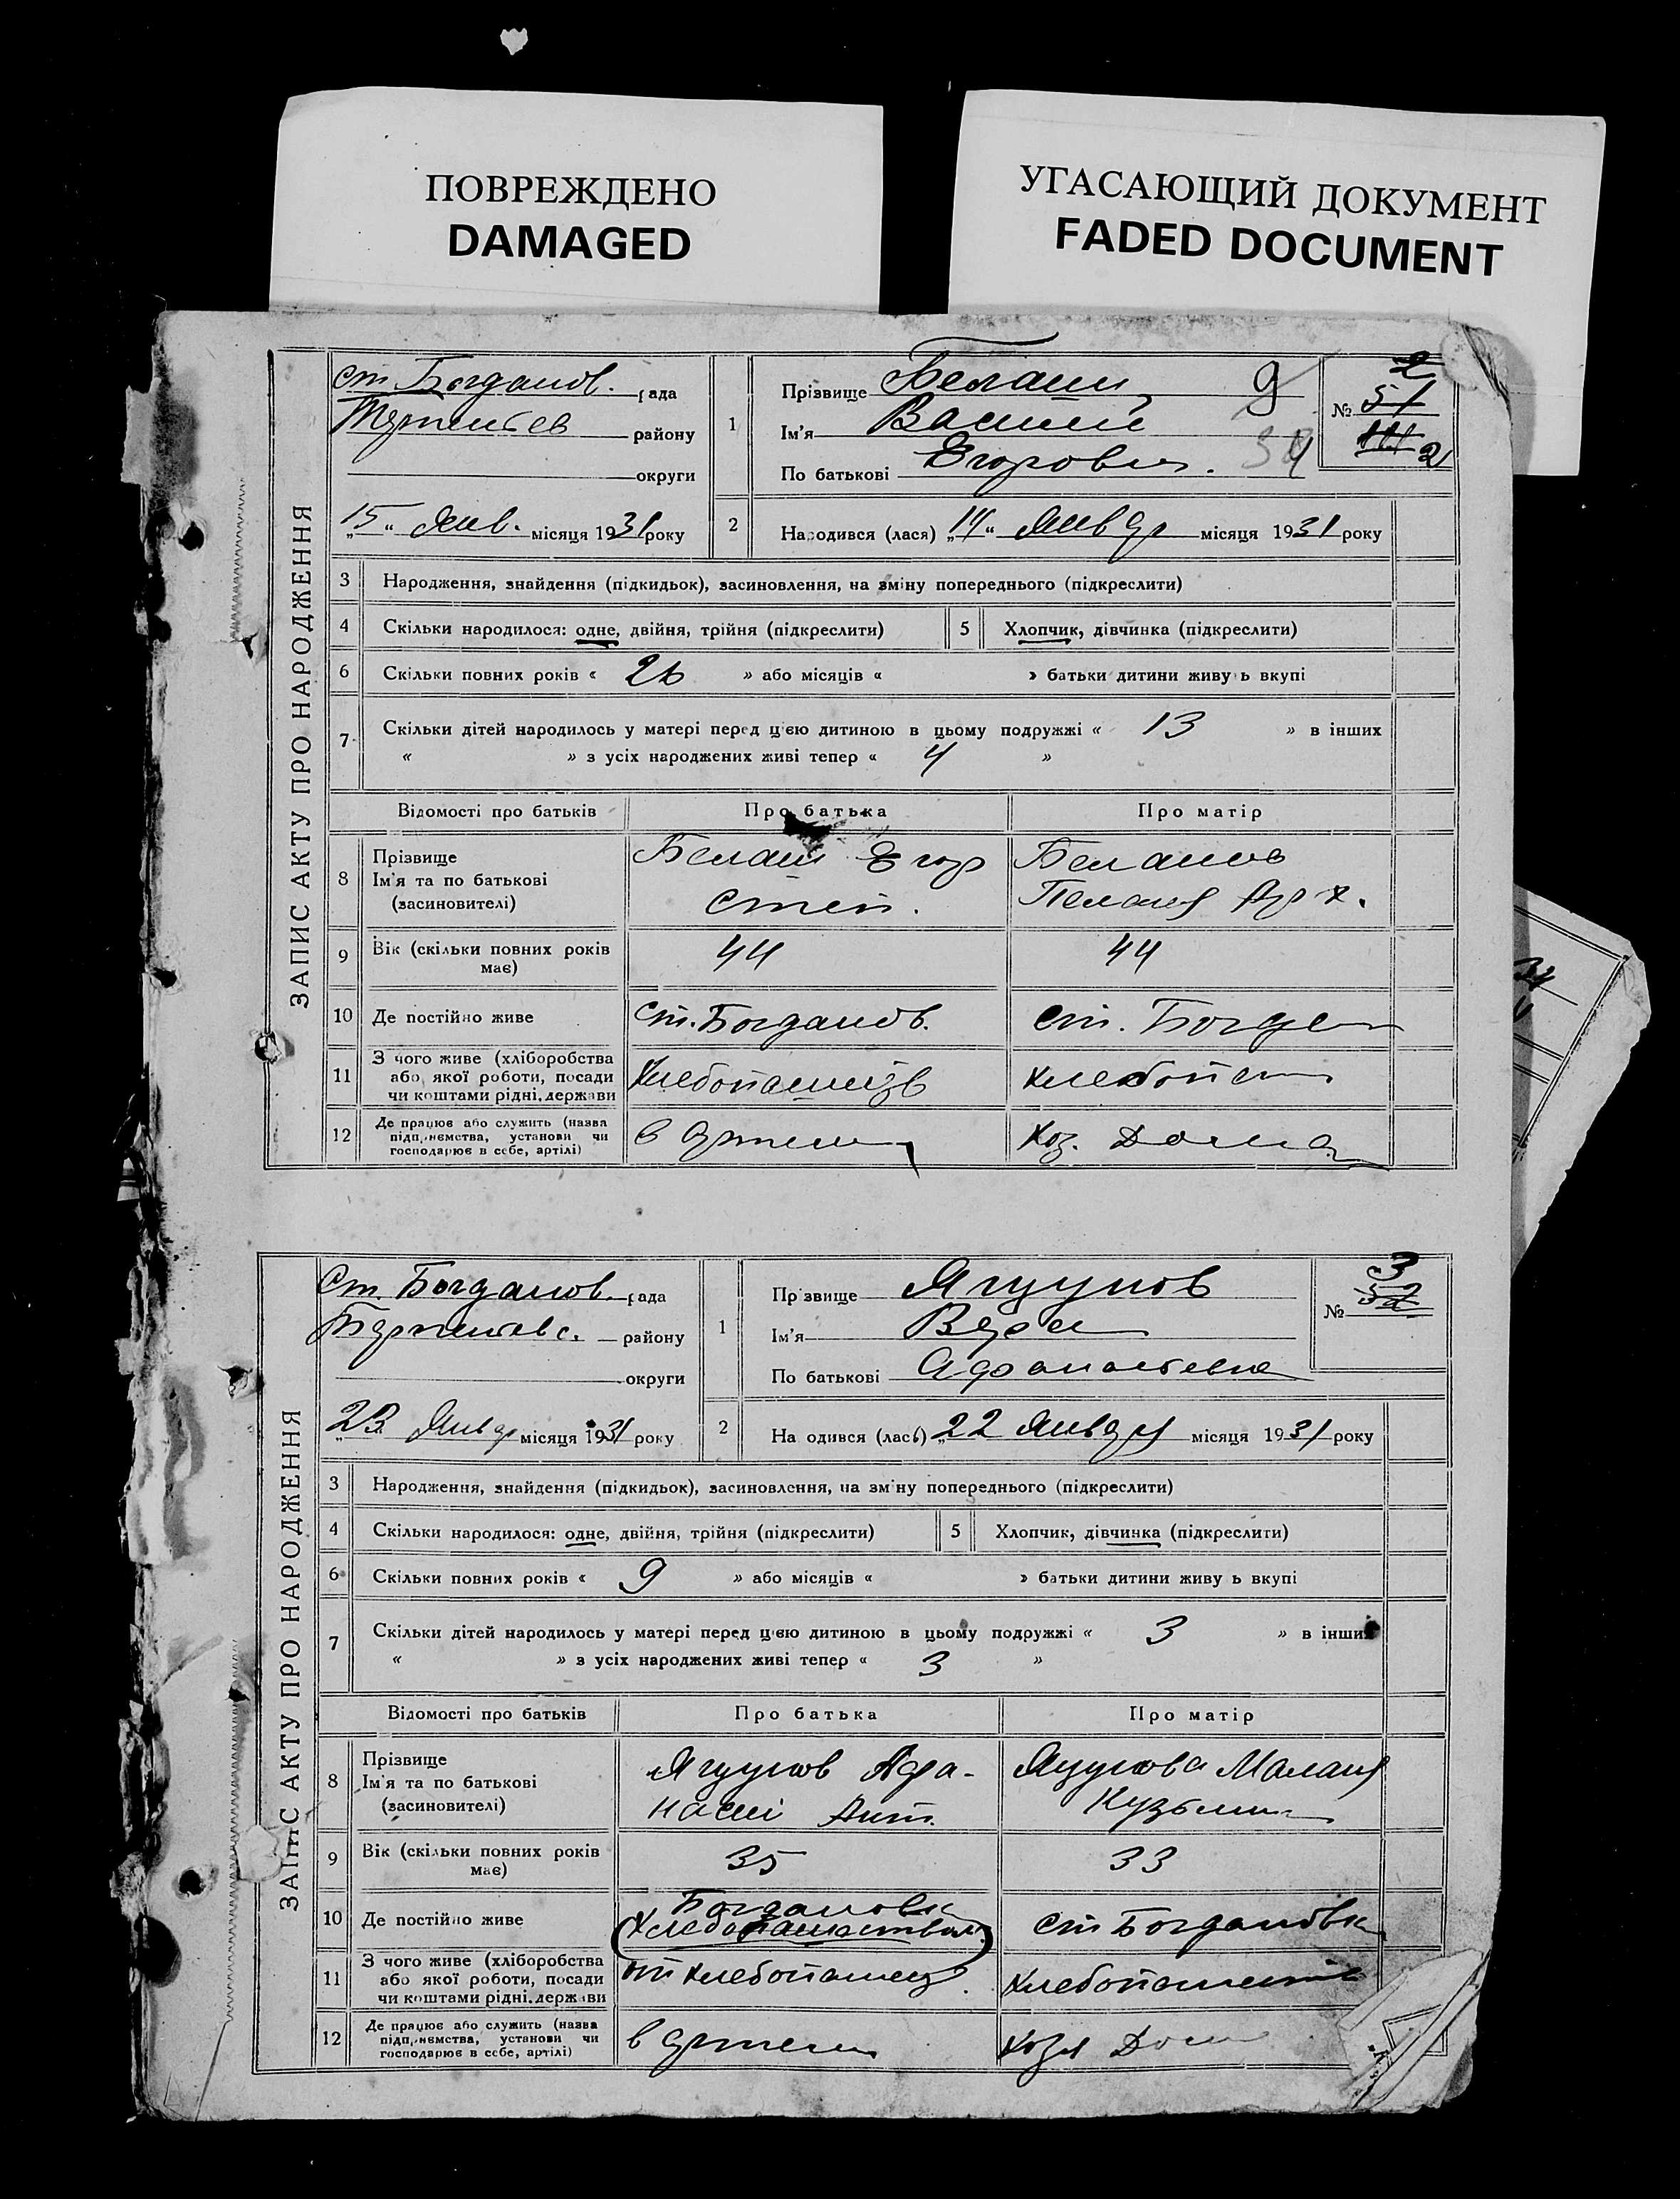 ПОВРЕЖДЕНО
DAMAGED
УГАСАЮЩИЙ ДОКУМЕНТ
FADED DOCUMENT
ЗАПИС АКТУ ПРО НАРОДЖЕННЯ
ст. Богданов. рада
району
округи
„15“ Янв. місяця 1931 року
1
Прізвище Белаш 9
Ім'я Василий
По батькові Егорович.
№ 51
2
2 Народився (лася) „14“ Январ місяця 1931 року
3 Народження, знайдення (підкидьок), засиновлення, на зміну попереднього (підкреслити)
4 Скільки народилося: одне, двійня, трійня (підкреслити) 5 Хлопчик, дівчинка (підкреслити)
6 Скільки повних років « 26 » або місяців « » батьки дитини живуть вкупі
7 Скільки дітей народилось у матері перед цією дитиною в цьому подружжі « 13 » в інших
« » з усіх народжених живі тепер « 4 »
Відомості про батьків Про батька Про матір
8 Прізвище
Ім'я та по батькові
(засиновителі)
Белаш Егор
Степ.
Пелагея Арх.
9 Вік (скільки повних років
має)
44 44
10 Де постійно живе ст. Богданов. ст. Богдан
11 З чого живе (хліборобства
або якої роботи, посади
чи коштами рідні, держави
12 Де працює або служить (назва
підприємства, установи чи
господарює в себе, артілі)
в артели Хоз. Дома
ЗАПИС АКТУ ПРО НАРОДЖЕННЯ
Ст. Богданов. рада
району
округи
„23 Январ місяця 1931 року
1
Прізвище Ягупов
Ім'я Вера
По батькові Афанасьевна
№ 52
3
2 Народився (лась) „22 Января місяця 1931 року
3 Народження, знайдення (підкидьок), засиновлення, на зміну попереднього (підкреслити)
4 Скільки народилося: одне, двійня, трійня (підкреслити) 5 Хлопчик, дівчинка (підкреслити)
6 Скільки повних років « 9 » або місяців « » батьки дитини живуть вкупі
7 Скільки дітей народилось у матері перед цією дитиною в цьому подружжі « 3 » в інших
« » з усіх народжених живі тепер « 3 »
Відомості про батьків Про батька Про матір
8 Прізвище
Ім'я та по батькові
(засиновителі)
Ягупов Афа-
насий Ант.
Ягупова Малания
Кузьмин
9 Вік (скільки повних років
має)
35 33
10 Де постійно живе Богдановка ст Богдановка
(Хлебопашеством)
11 З чого живе (хліборобства
або якої роботи, посади
чи коштами рідні, держави
12 Де працює або служить (назва
підприємства, установи чи
господарює в себе, артілі)
в артели Хозя Дом